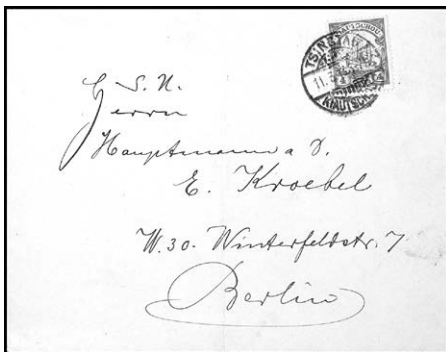 KIAUTSCHOU
TSINGTAU
KIAUTSCH
S. H.
Herrn
Hauptmann a D.
E. Kroebel
W. 30. Winterfeldstr. 7
Berlin